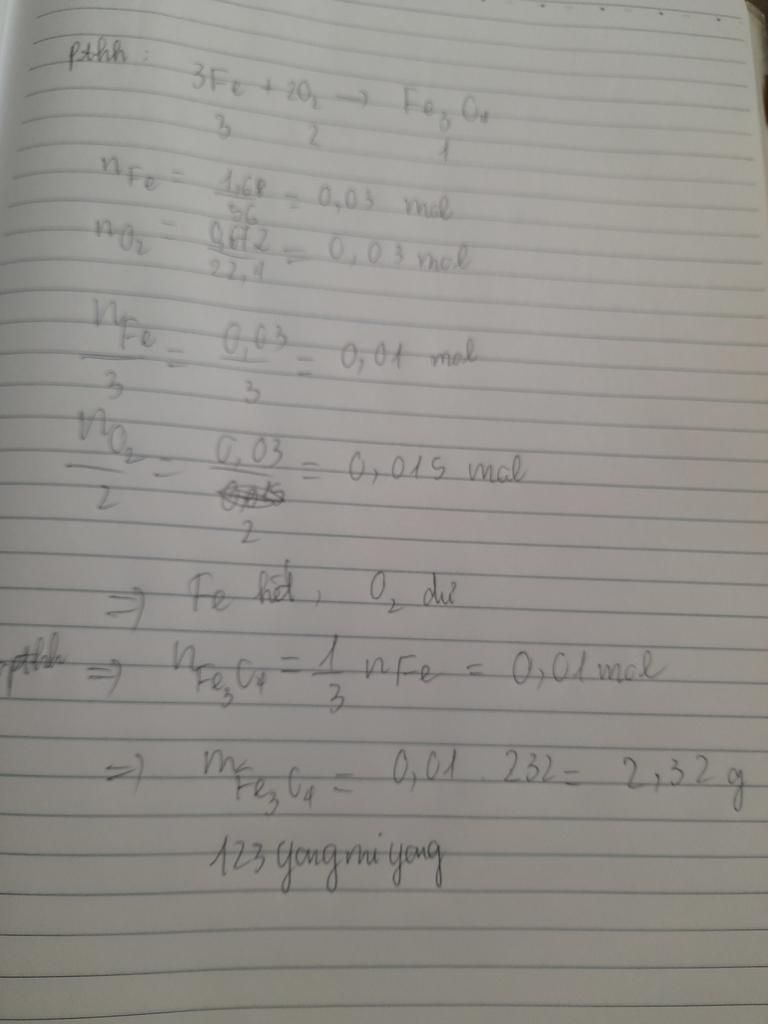 pthh :
3Fe + 2O₂ → Fe₃O₄
3 2 1
nFe = 1,68/56 = 0,03 mol
nO₂ = 0,672/22,4 = 0,03 mol
nFe/3 = 0,03/3 = 0,01 mol
nO₂/2 = 0,03/2 = 0,015 mol
⇒ Fe hết, O₂ dư
pthh ⇒ nFe₃O₄ = 1/3 nFe = 0,01 mol
⇒ mFe₃O₄ = 0,01 . 232 = 2,32 g
123 yongmiyong